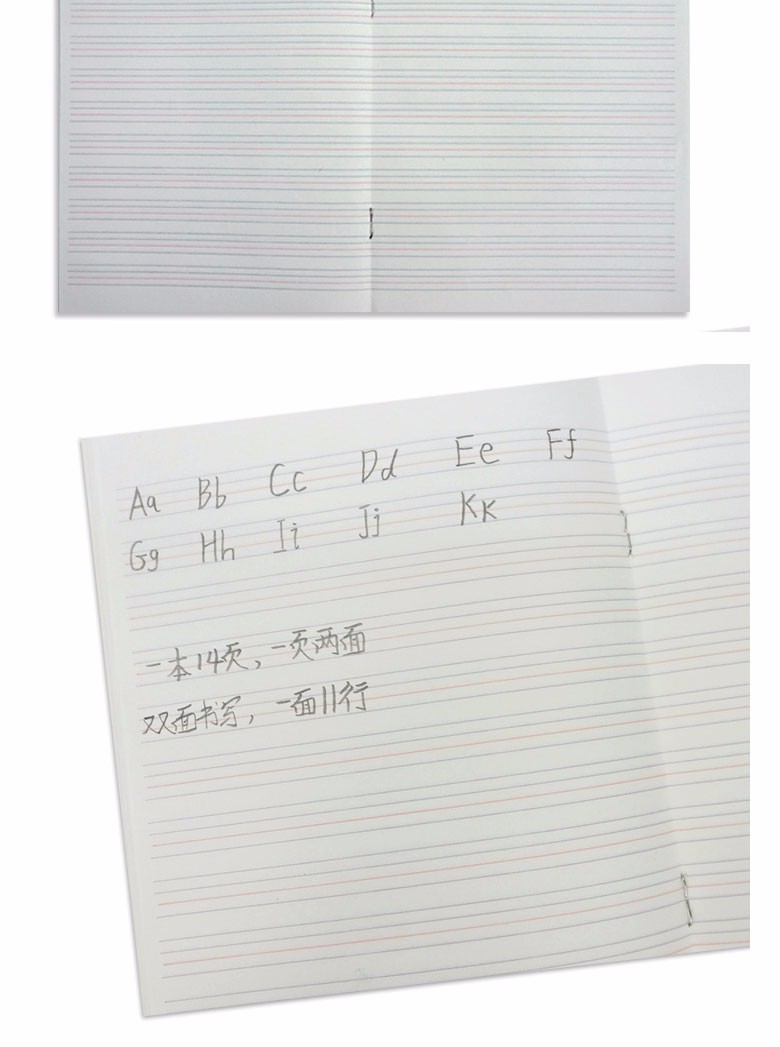 Aa Bb Cc Dd Ee Ff
Gg Hh Ii Jj Kk
一本14页，一页两面
双面书写，一面11行